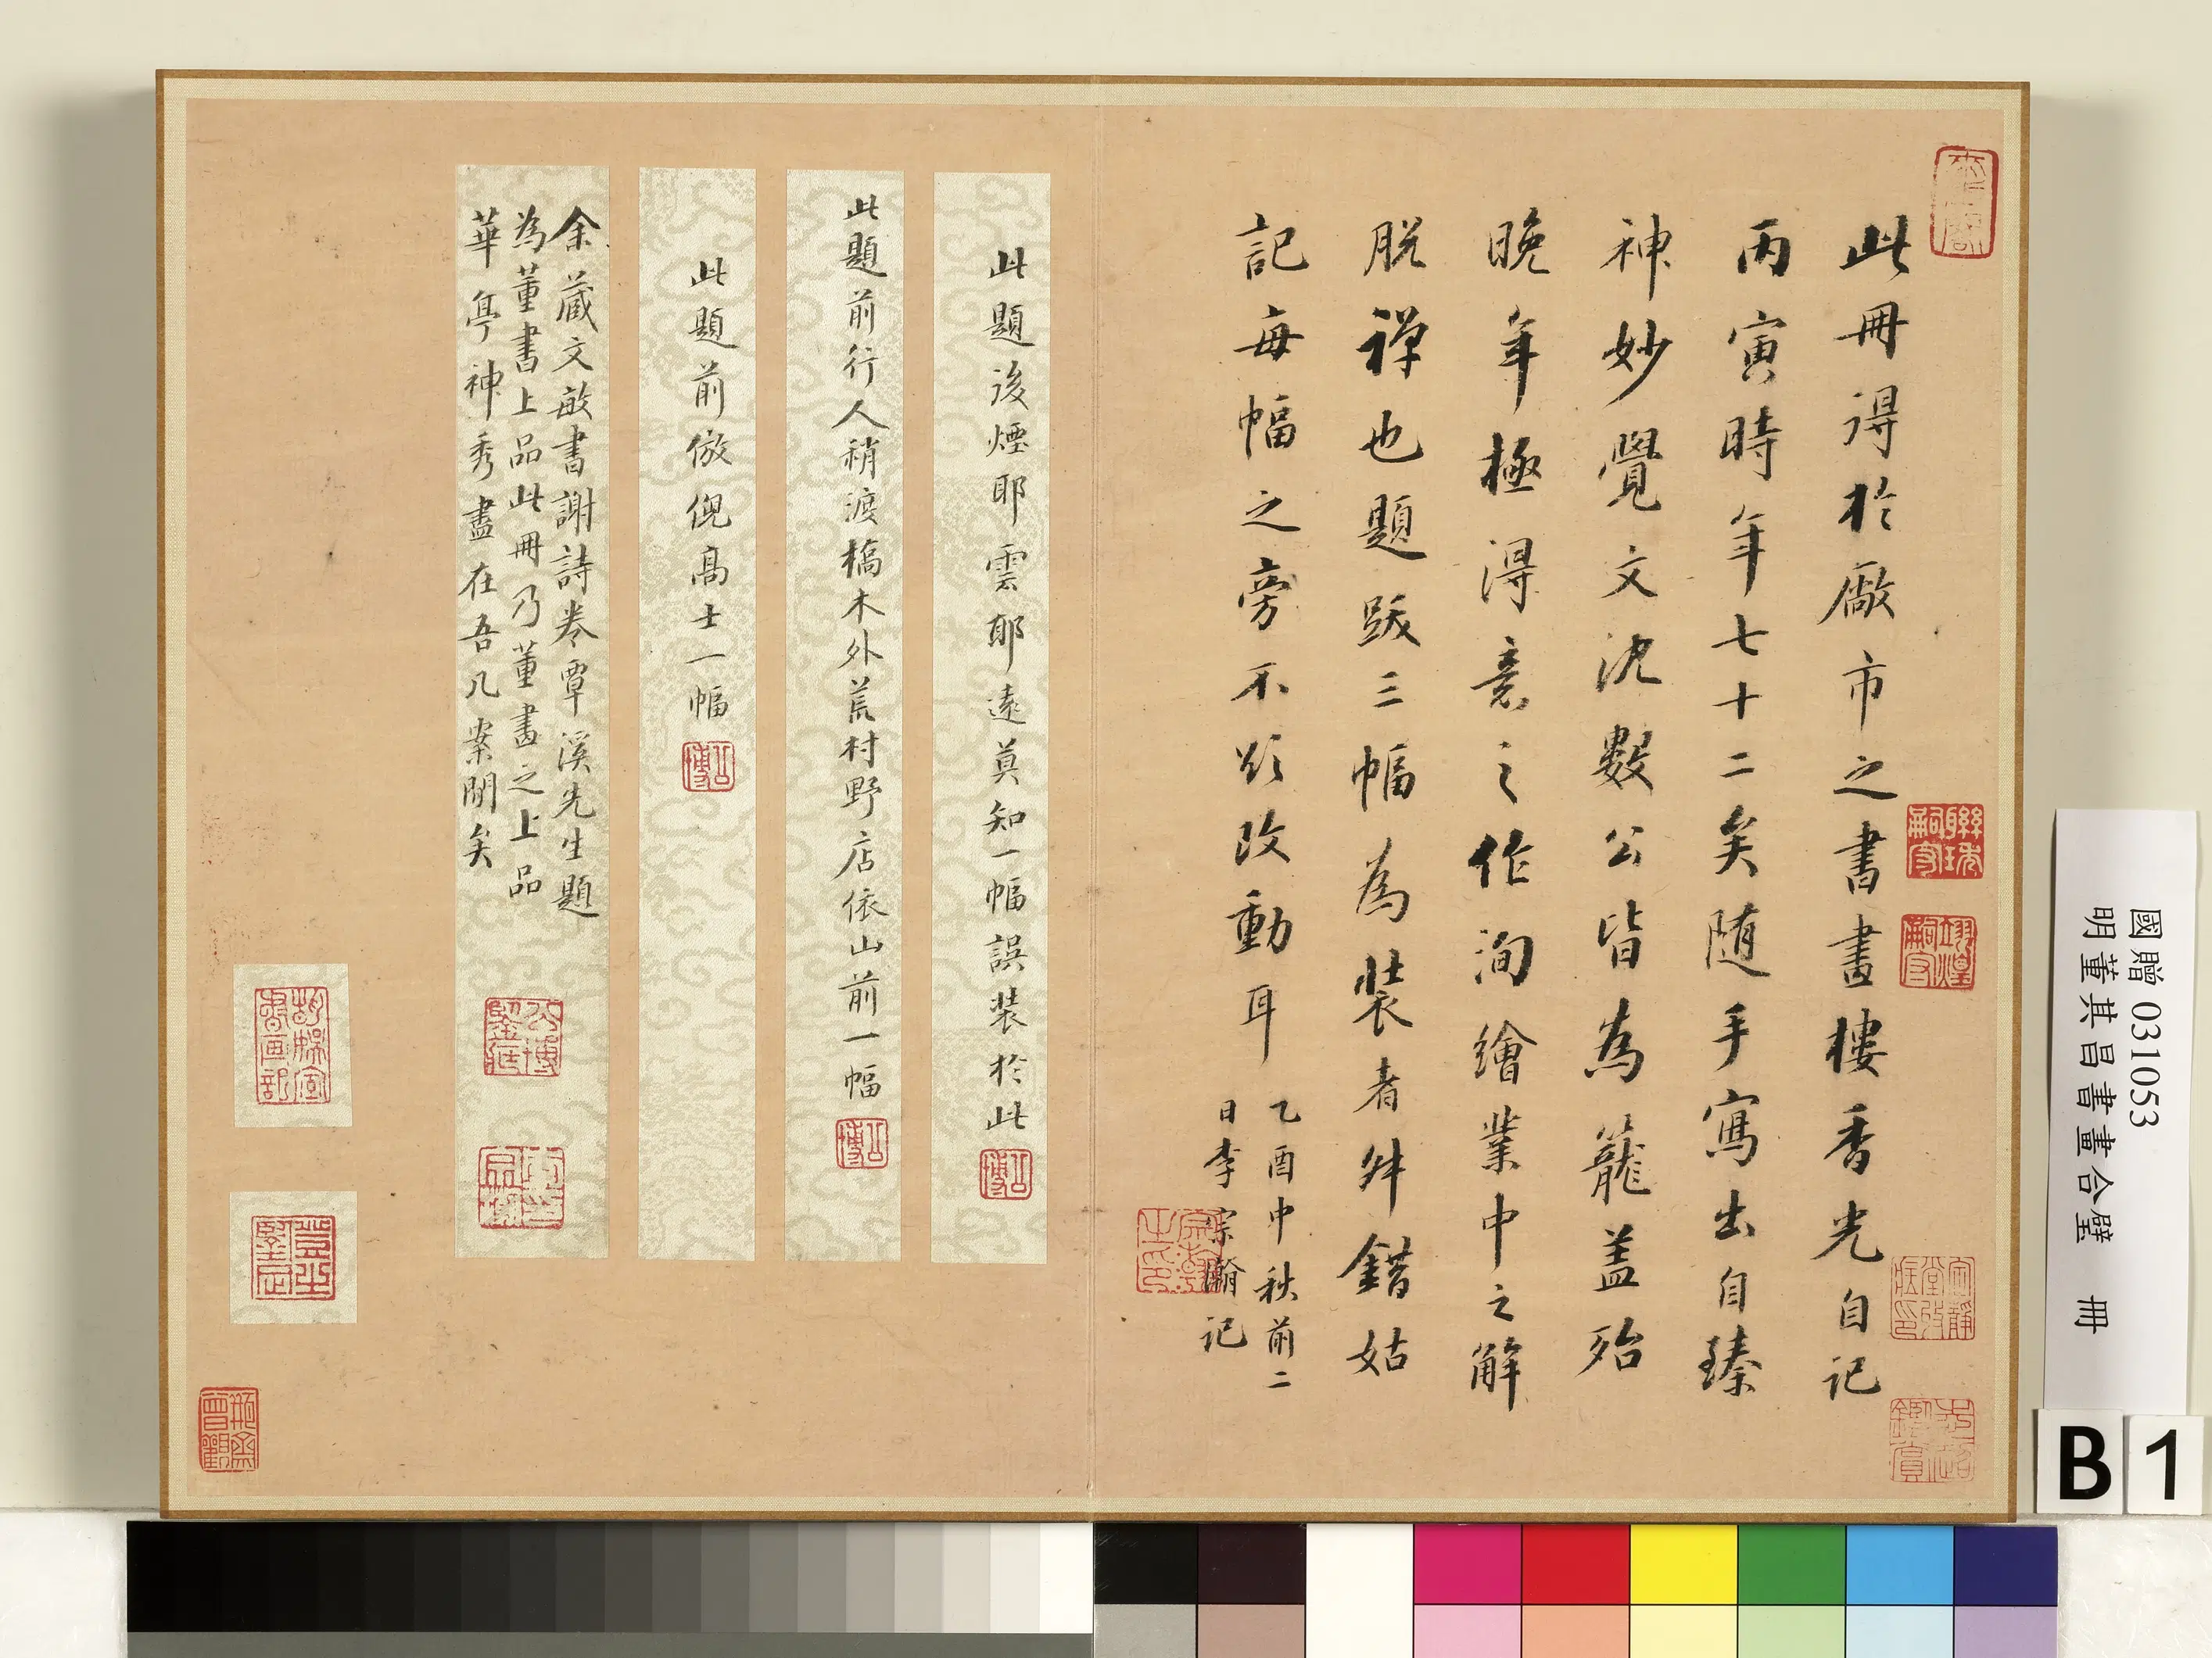 此冊得於廠市之書畫樓香光自記
丙寅時年七十二矣随手寫出自臻
神妙覺文沈數公皆為籠盖殆
晚年極得意之作洵繪業中之解
脱禅也題跋三幅為裝者舛錯姑
記每幅之旁不欲改動耳
乙酉中秋前二
日李宗瀚記
此題後煙耶雲耶遠莫知一幅誤裝於此
公博
此題前行人稍渡橋木外荒村野店依山前一幅
公博
此題前倣倪髙士一幅
公博
余蔵文敏書謝詩卷覃溪先生題
為董書上品此冊乃董畫之上品
華亭神秀盡在吾几案閒矣
國贈 031053
明董其昌書畫合璧 冊
B 1